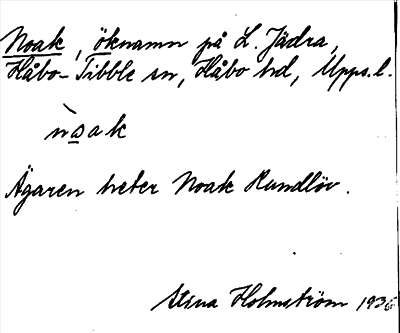 Noak, öknamn på L. Jädra,
Håbo-Tibble sn, Håbo hd, Upps.l.
nòak
Ägaren heter Noak Rundlöv.
Stina Holmström 1936